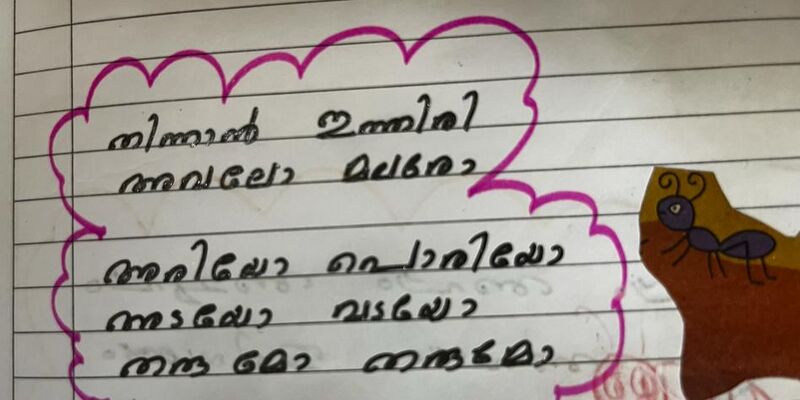 തിന്നാൻ ഇത്തിരി
അവലോ മലരോ
അരിയോ പൊരിയോ
അടയോ വടയോ
തരുമോ തരുമോ